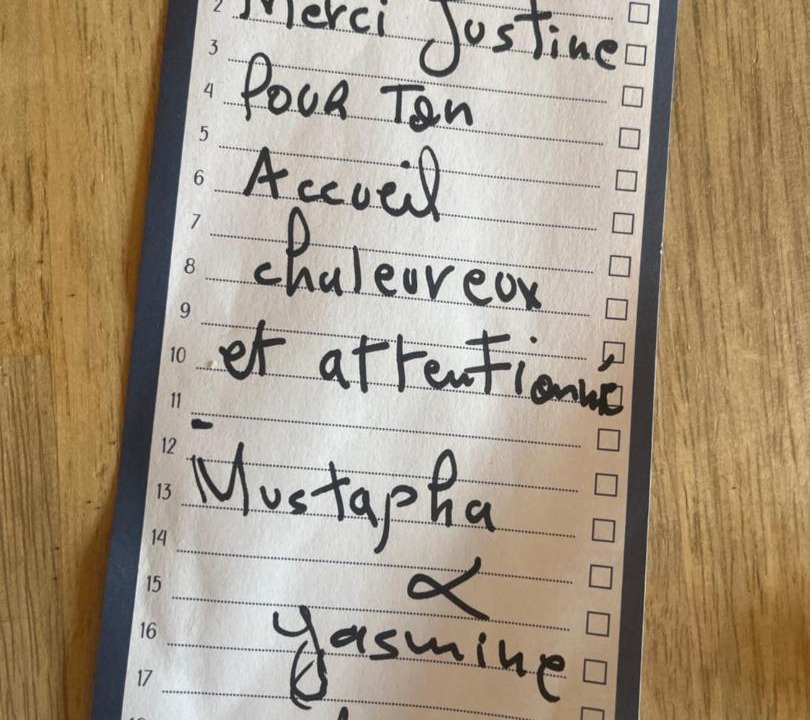 2 Merci Justine
3
4 Pour Ton
5
6 Accueil
7
8 chaleureux
9
10 et attentionné
11
12 -
13 Mustapha
14
15 &
16 Yasmine
17